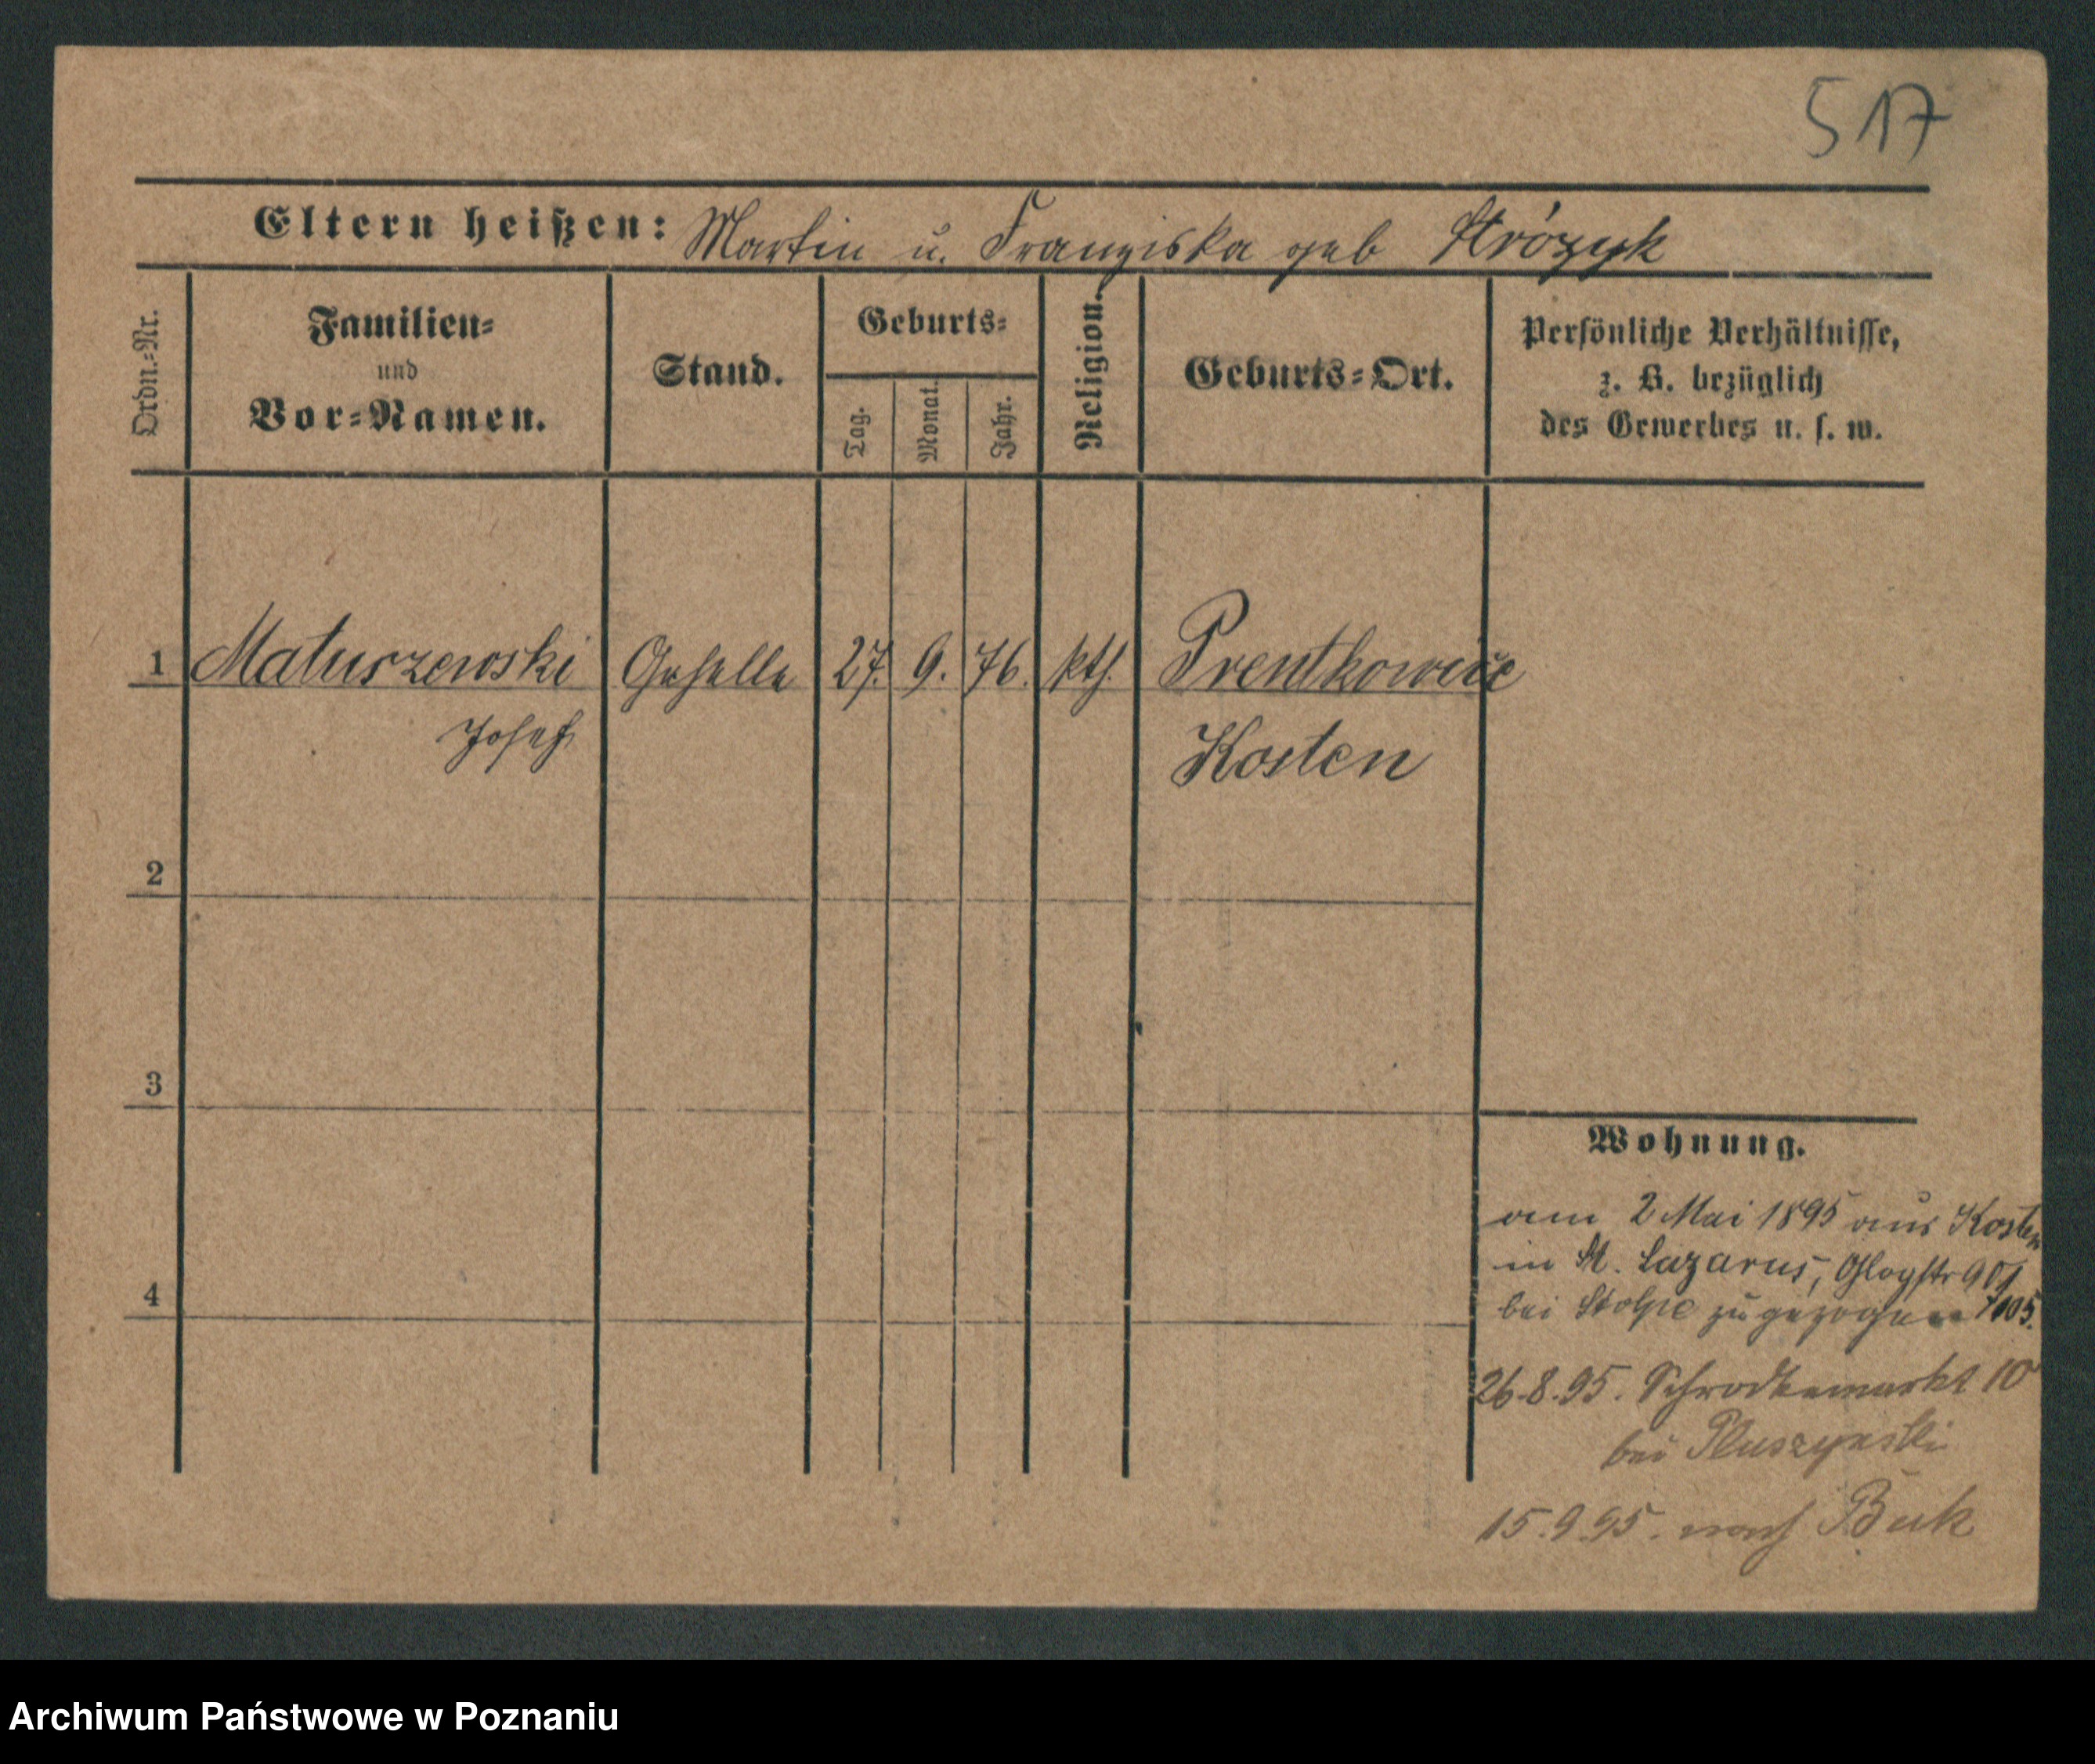 517
Eltern heißen: Martin u. Franziska geb Stróżyk
Ordn.-Nr.
Familien-
und
Vor-Namen.
Stand.
Geburts-
Tag.
Monat.
Jahr.
Religion.
Geburts-Ort.
Persönliche Verhältnisse,
z. B. bezüglich
des Gewerbes u. s. w.
1 Matuszewski Geselle 27. 9. 76. kth.
Josef Kosten
2
3
4
Wohnung.
am 2 Mai 1895 aus Kosten
in St. Lazarus, Glogstr 901
bei Stolpe zugezogen
26.8.95. Schrodkamarkt 10
bei Pluszynski
15.9.95. nach Buk
Archiwum Państwowe w Poznaniu